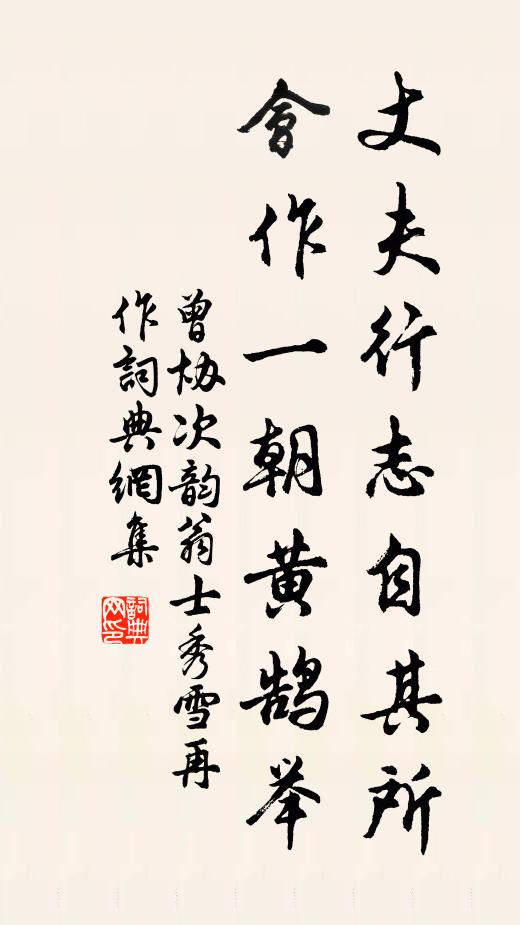 丈夫行志自其所
會作一朝黄鹄举
曾協次韵翁士秀雪再
作詞典網集
詞典網印